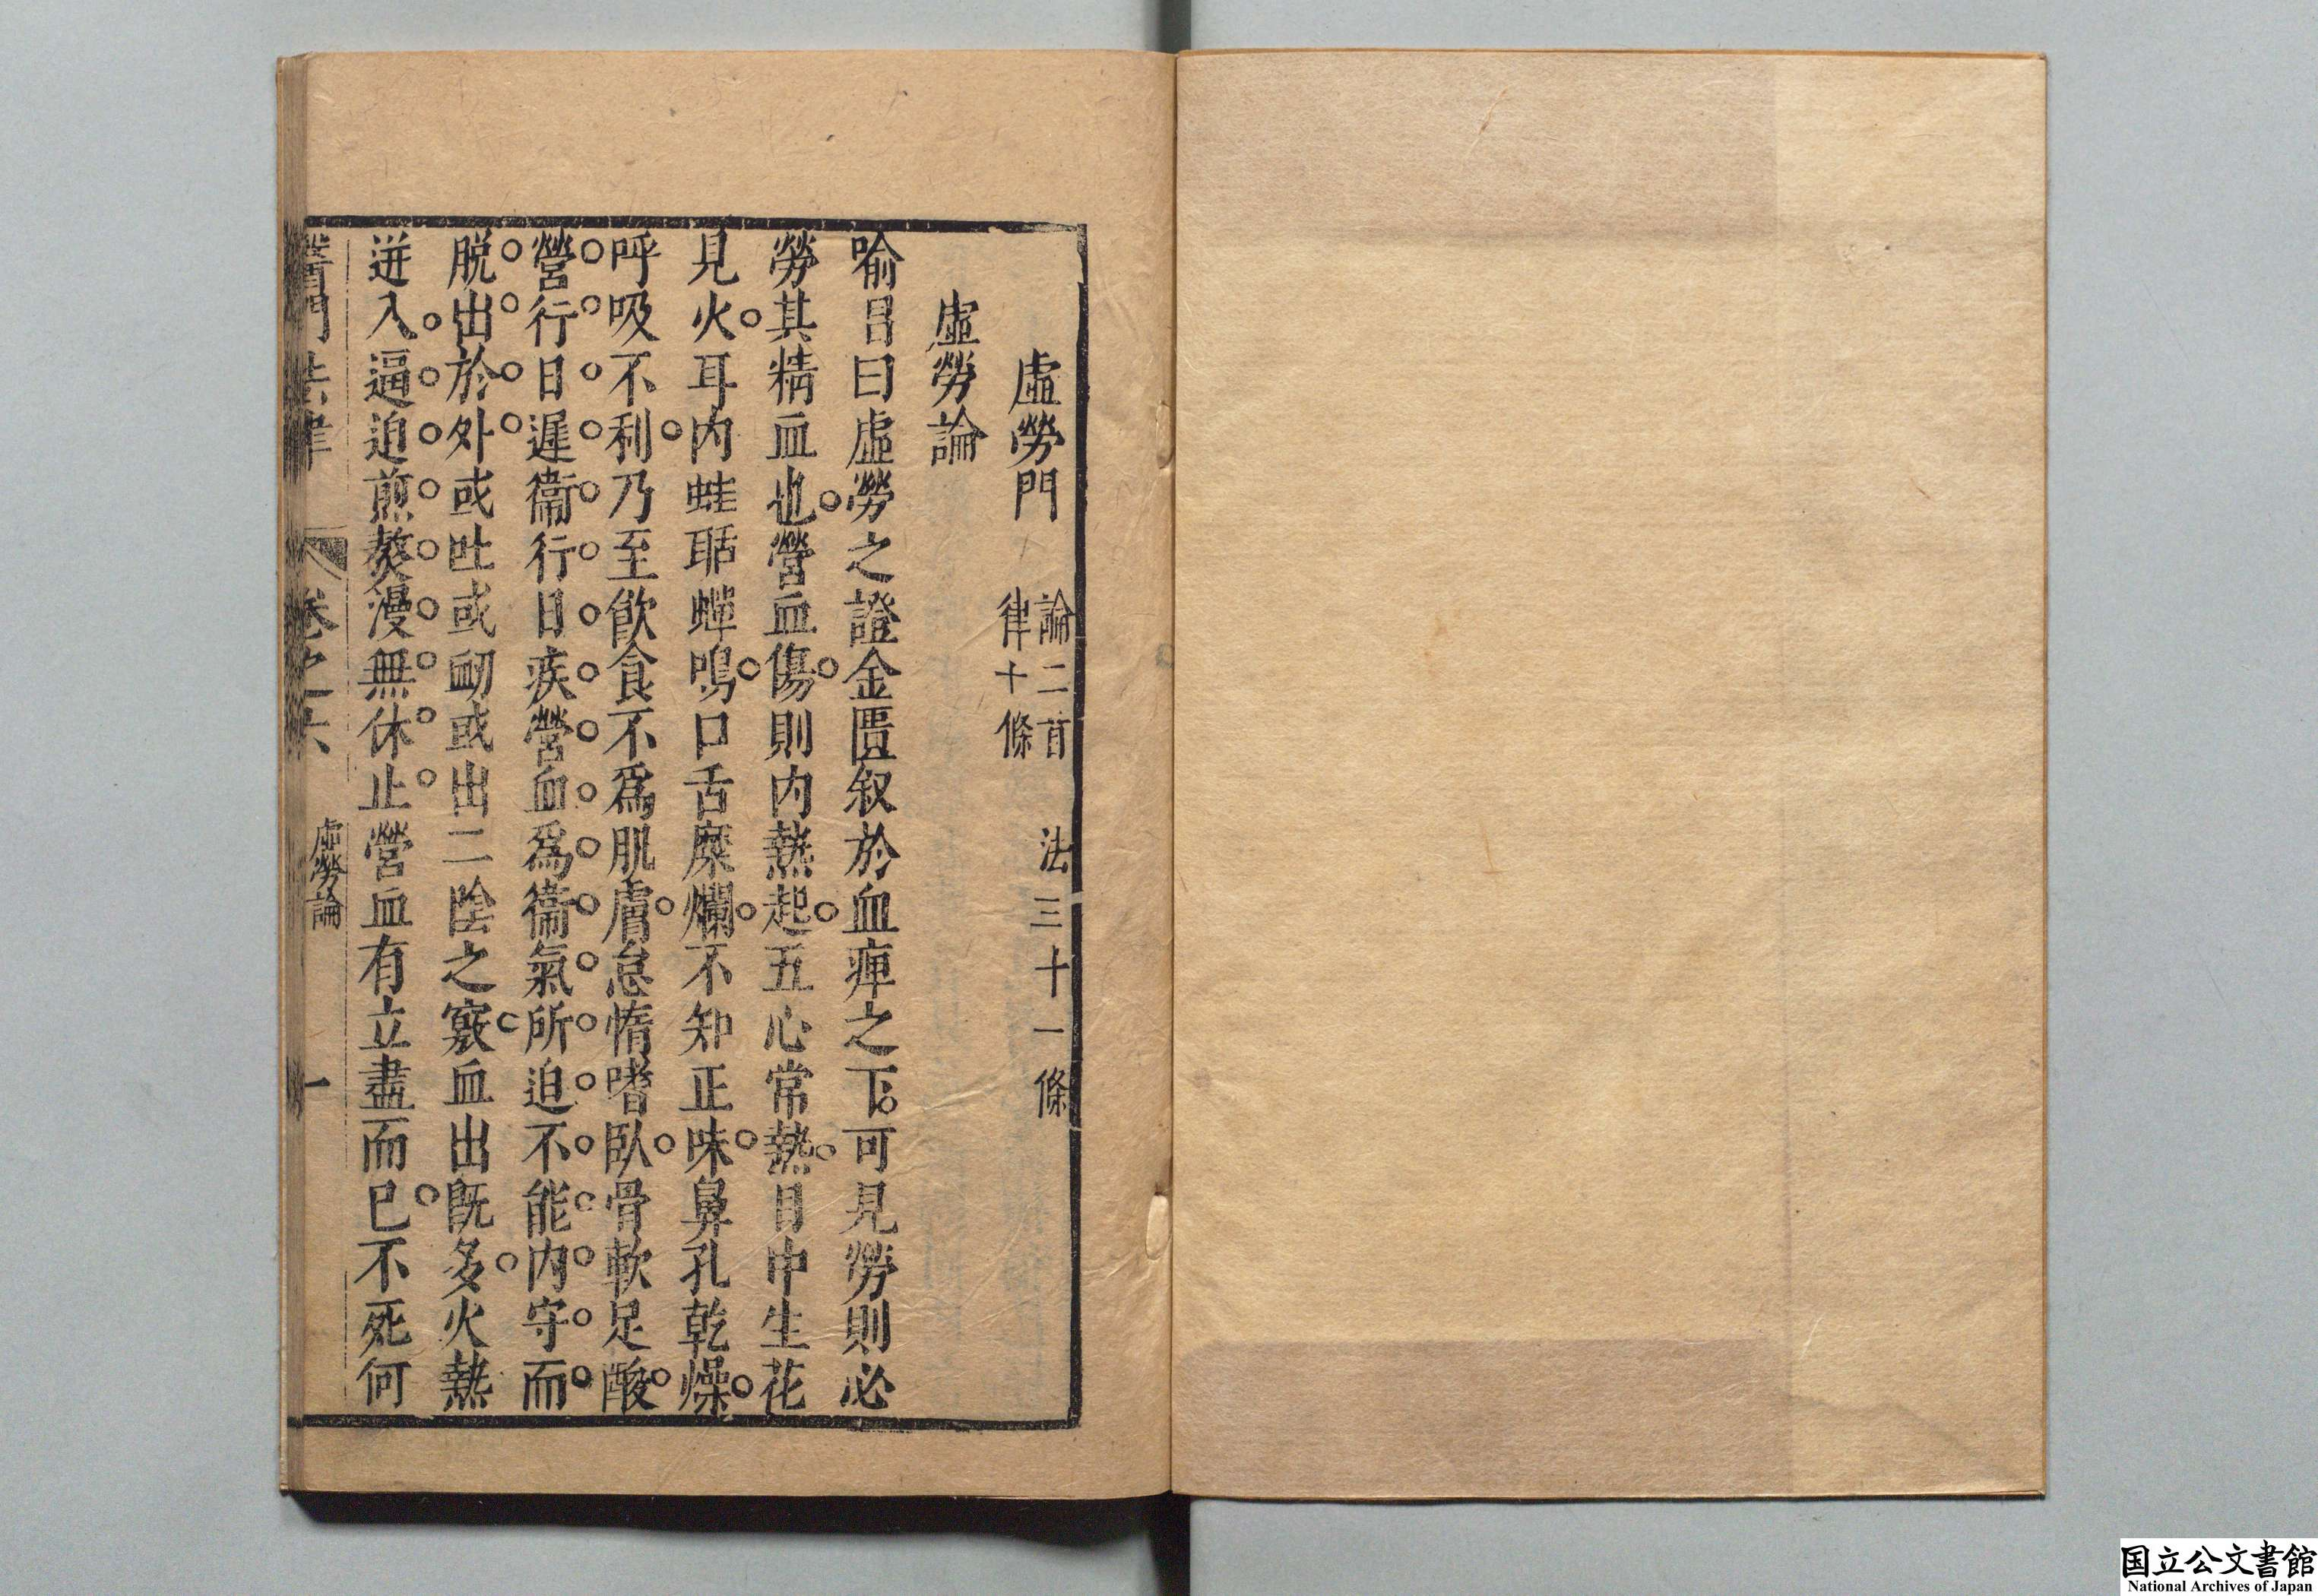 虛勞門 論二首 法三十一條
律十條
虛勞論
喻昌曰虛勞之證金匱叙於血痺之下可見勞則必
勞其精血也營血傷則内熱起五心常熱目中生花
見火耳内蛙聒蟬鳴口舌糜爛不知正味鼻孔乾燥
呼吸不利乃至飲食不爲肌膚怠惰嗜臥骨軟足酸
營行日遲衞行日疾營血爲衞氣所迫不能内守而
脱出於外或吐或衂或出二陰之竅血出既多火熱
迸入逼迫煎熬漫無休止營血有立盡而已不死何
醫門法律 卷之六 虛勞論 一
国立公文書館
National Archives of Japan